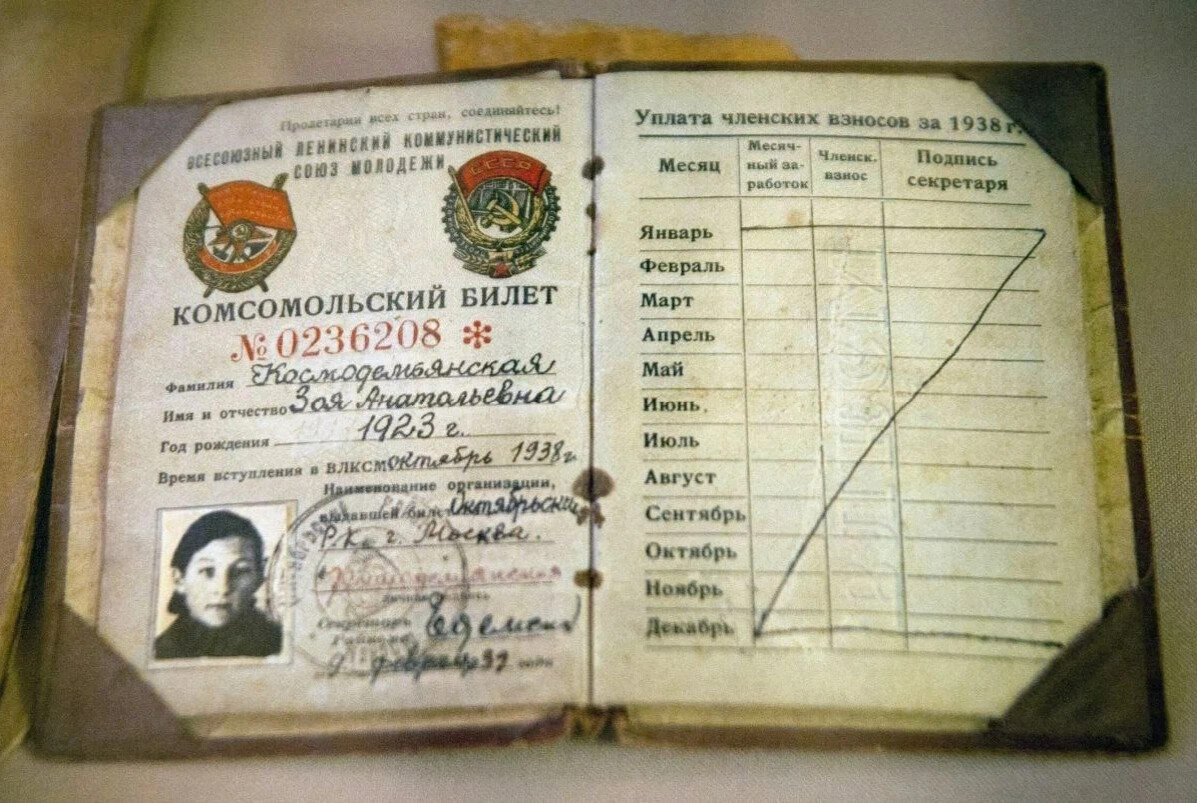 Пролетарии всех стран, соединяйтесь!
ВСЕСОЮЗНЫЙ ЛЕНИНСКИЙ КОММУНИСТИЧЕСКИЙ
СОЮЗ МОЛОДЕЖИ
СССР
КОМСОМОЛЬСКИЙ БИЛЕТ
№ 0236208 *
Фамилия Космодемьянская
Имя и отчество Зоя Анатольевна
Год рождения 1923 г.
Время вступления в ВЛКСМ октябрь 1938 г.
Наименование организации,
выдавшей билет Октябрьский
РК г. Москва.
личная подпись
Секретарь
Райкома
9 февраля 39
Уплата членских взносов за 1938 г.
Месяц
Месяч-
ный за-
работок
Членск.
взнос
Подпись
секретаря
Январь
Февраль
Март
Апрель
Май
Июнь
Июль
Август
Сентябрь
Октябрь
Ноябрь
Декабрь